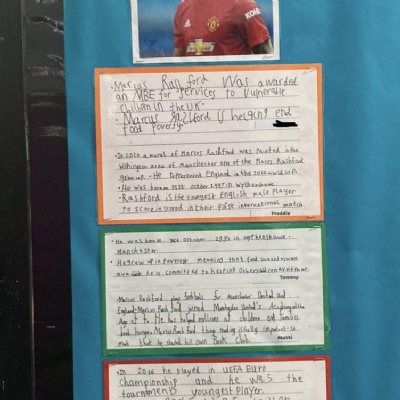 KOHL
CHEVROLET
• Marcus Rashford was awarded
an MBE for services to vulnerable
children in the UK.
• Marcus Rashford is helping end
food poverty.
• In 2020 a mural of Marcus Rashford was painted in the
Withington area of Manchester one of the places Rashford
grew up. • He represented England in the 2020 world
• He was born on 31st october 1997 in wythenshawe
• Rashford is the youngest English male player
to score in their first international match.
Freddie
• He was born 31st october 1997 in wythenshawe
Manchester.
• He grew up in poverty meaning that food was not always
available he is committed to helping others
Tommy
Marcus Rashford plays football for manchester United and
England. Marcus Rashford joined Manchester United's Academy at the
Age of 7. He has helped millions of children and families
food hunger. Marcus Rashford things reading is really important so
much that he started his own Book Club.
Matti
• In 2016 he played in UEFA Euro
Championship and he was the
tournaments youngest Player.